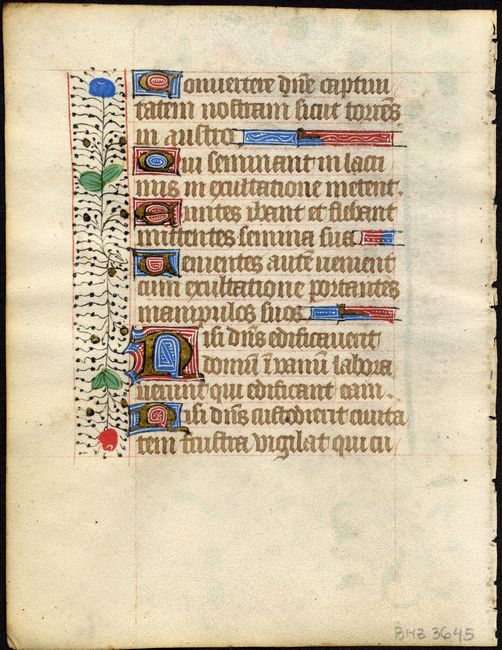 Convertere dn̄e captiui
tatem nostram sicut torrēs
in austro
Qui seminant in lacri
mis in exultatione metent.
Euntes ibant et flebant
mittentes semina sua
Uenientes autē uenient
cum exultatione portantes
manipulos suos
Nisi dn̄s edificauerit
domū ī vanū labora
uerunt qui edificant eam.
Nisi dn̄s custodierit ciuita
tem frustra vigilat qui cu
BHZ 3645